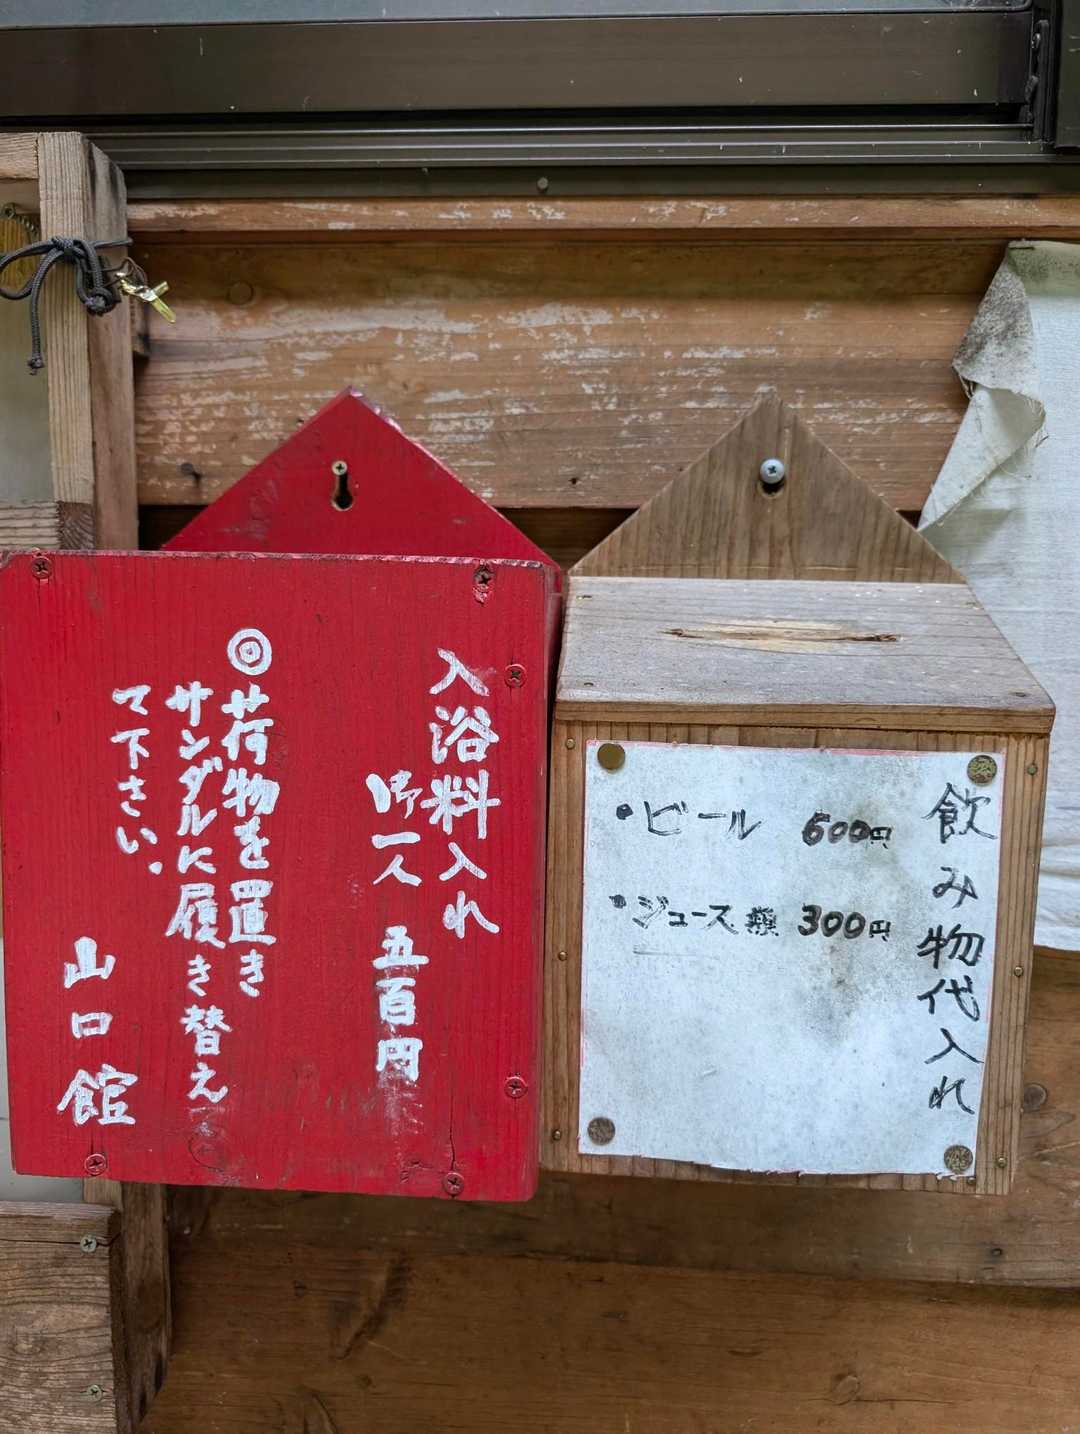 入浴料入れ
御一人 五百円
◎荷物を置き
サンダルに履き替え
て下さい。
山口館
飲み物代入れ
・ビール 600円
・ジュース類 300円